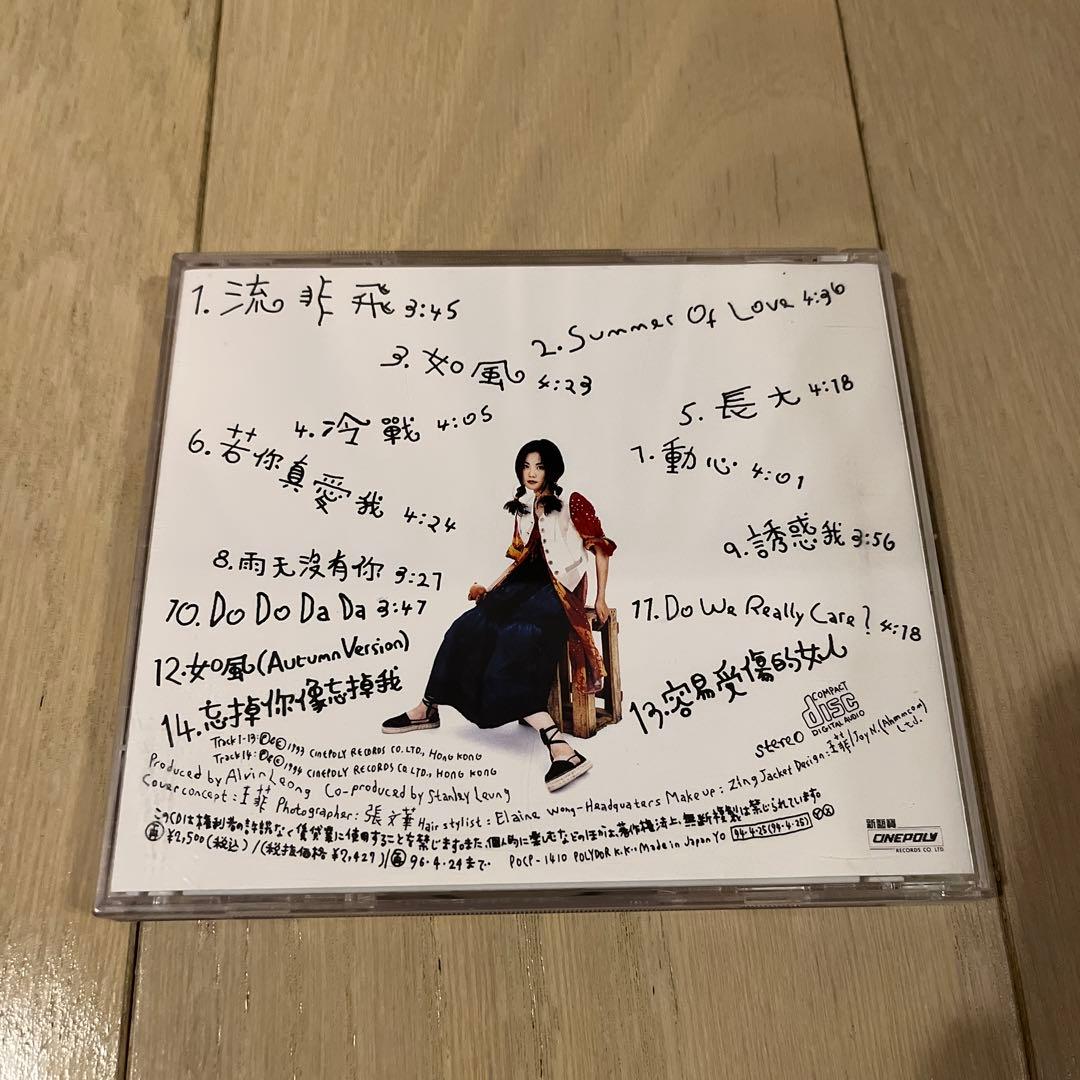 1. 流非飛 3:45
2. Summer Of Love 4:36
3. 如風 4:23
4. 冷戰 4:05
5. 長大 4:18
6. 若你真愛我 4:24
7. 動心 4:01
8. 雨天沒有你 3:27
9. 誘惑我 3:56
10. Do Do Da Da 3:47
11. Do We Really Care? 4:18
12. 如風(Autumn Version)
13. 容易受傷的女人
14. 忘掉你像忘掉我
COMPACT
disc
DIGITAL AUDIO
stereo
Track1-13:Ⓟ&©1993 CINEPOLY RECORDS CO.LTD., HONG KONG
Track14:Ⓟ&©1994 CINEPOLY RECORDS CO.LTD., HONG KONG
Produced by Alvin Leong Co-produced by Stanley Leung
Cover concept:王菲 Photographer:張文華 Hair stylist:Elaine Wong-Headquaters Make up:Zing Jacket Design:王菲/Joy N.(Ahmmcom) Ltd.
このCDは権利者の許諾なく賃貸業に使用することを禁じます。また、個人的に楽しむなどのほかは、著作権法上、無断複製は禁じられています。
㊢¥2,500(税込)/(税抜価格 ¥2,427)/㊢96・4・24まで POCP-1410 POLYDOR K.K.・Made in Japan YO 94・4・25(94・4・25) Ⓨ Ⓧ
新藝寶
CINEPOLY
RECORDS CO. LTD